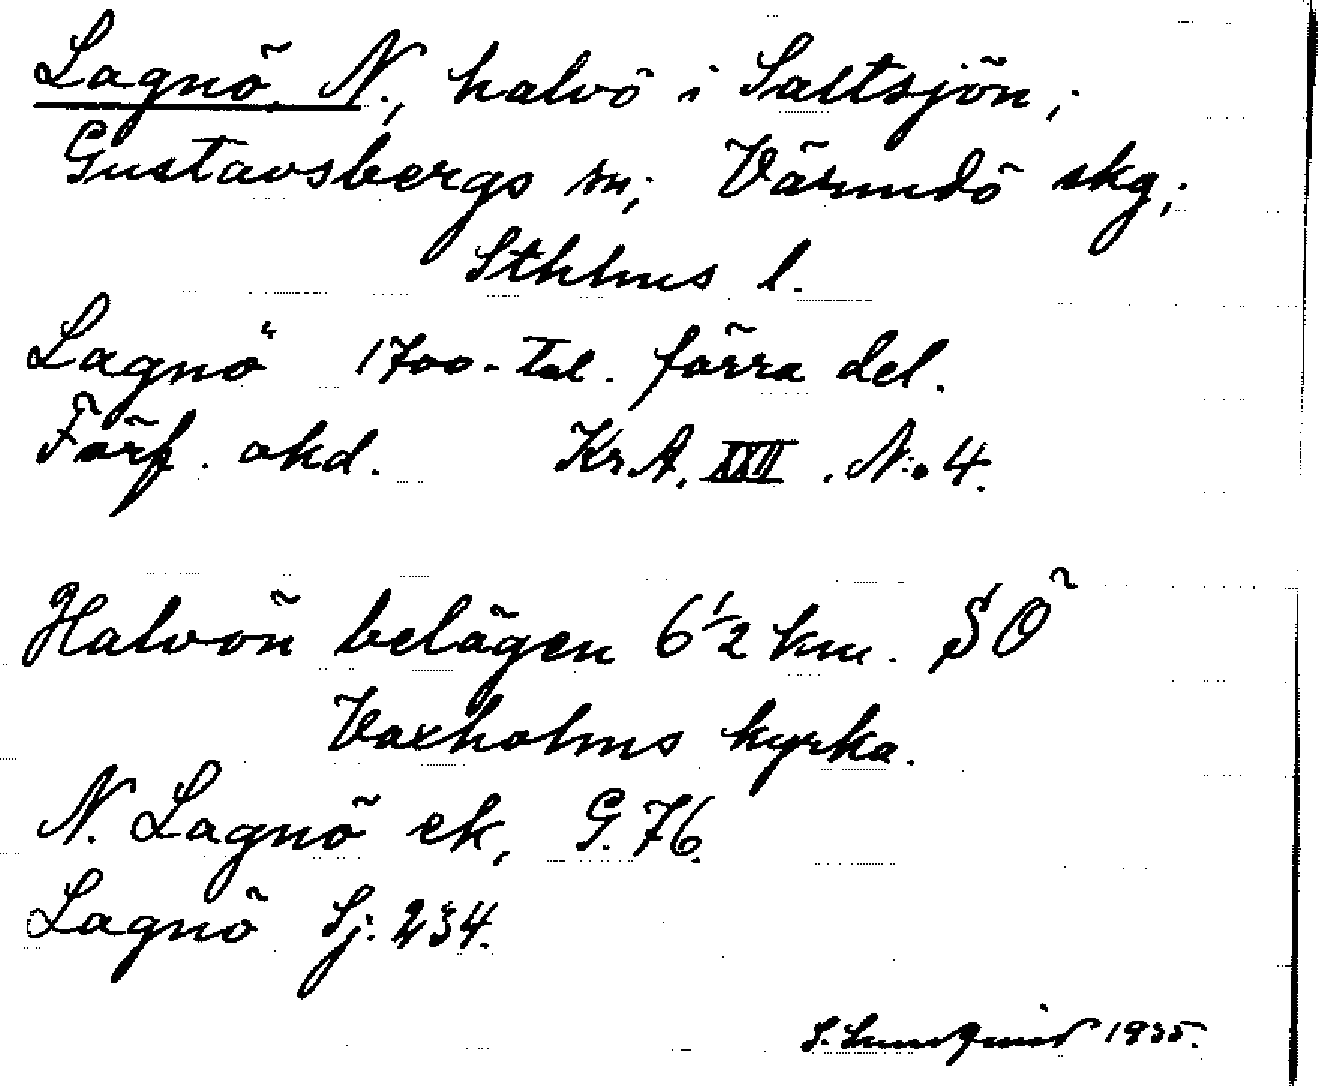 Lagnö, N., halvö i Saltsjön;
Gustavsbergs sn; Värmdö skg;
Sthlms l.
Lagnö 1700-tal. förra del.
Förf. okd. Kr.A. XXII. N:o 4.
Halvön belägen 6 1/2 km. SÖ
Vaxholms kyrka.
N. Lagnö ek, G. 76.
Lagnö Sj. 234.
S. Lundqvist 1935.